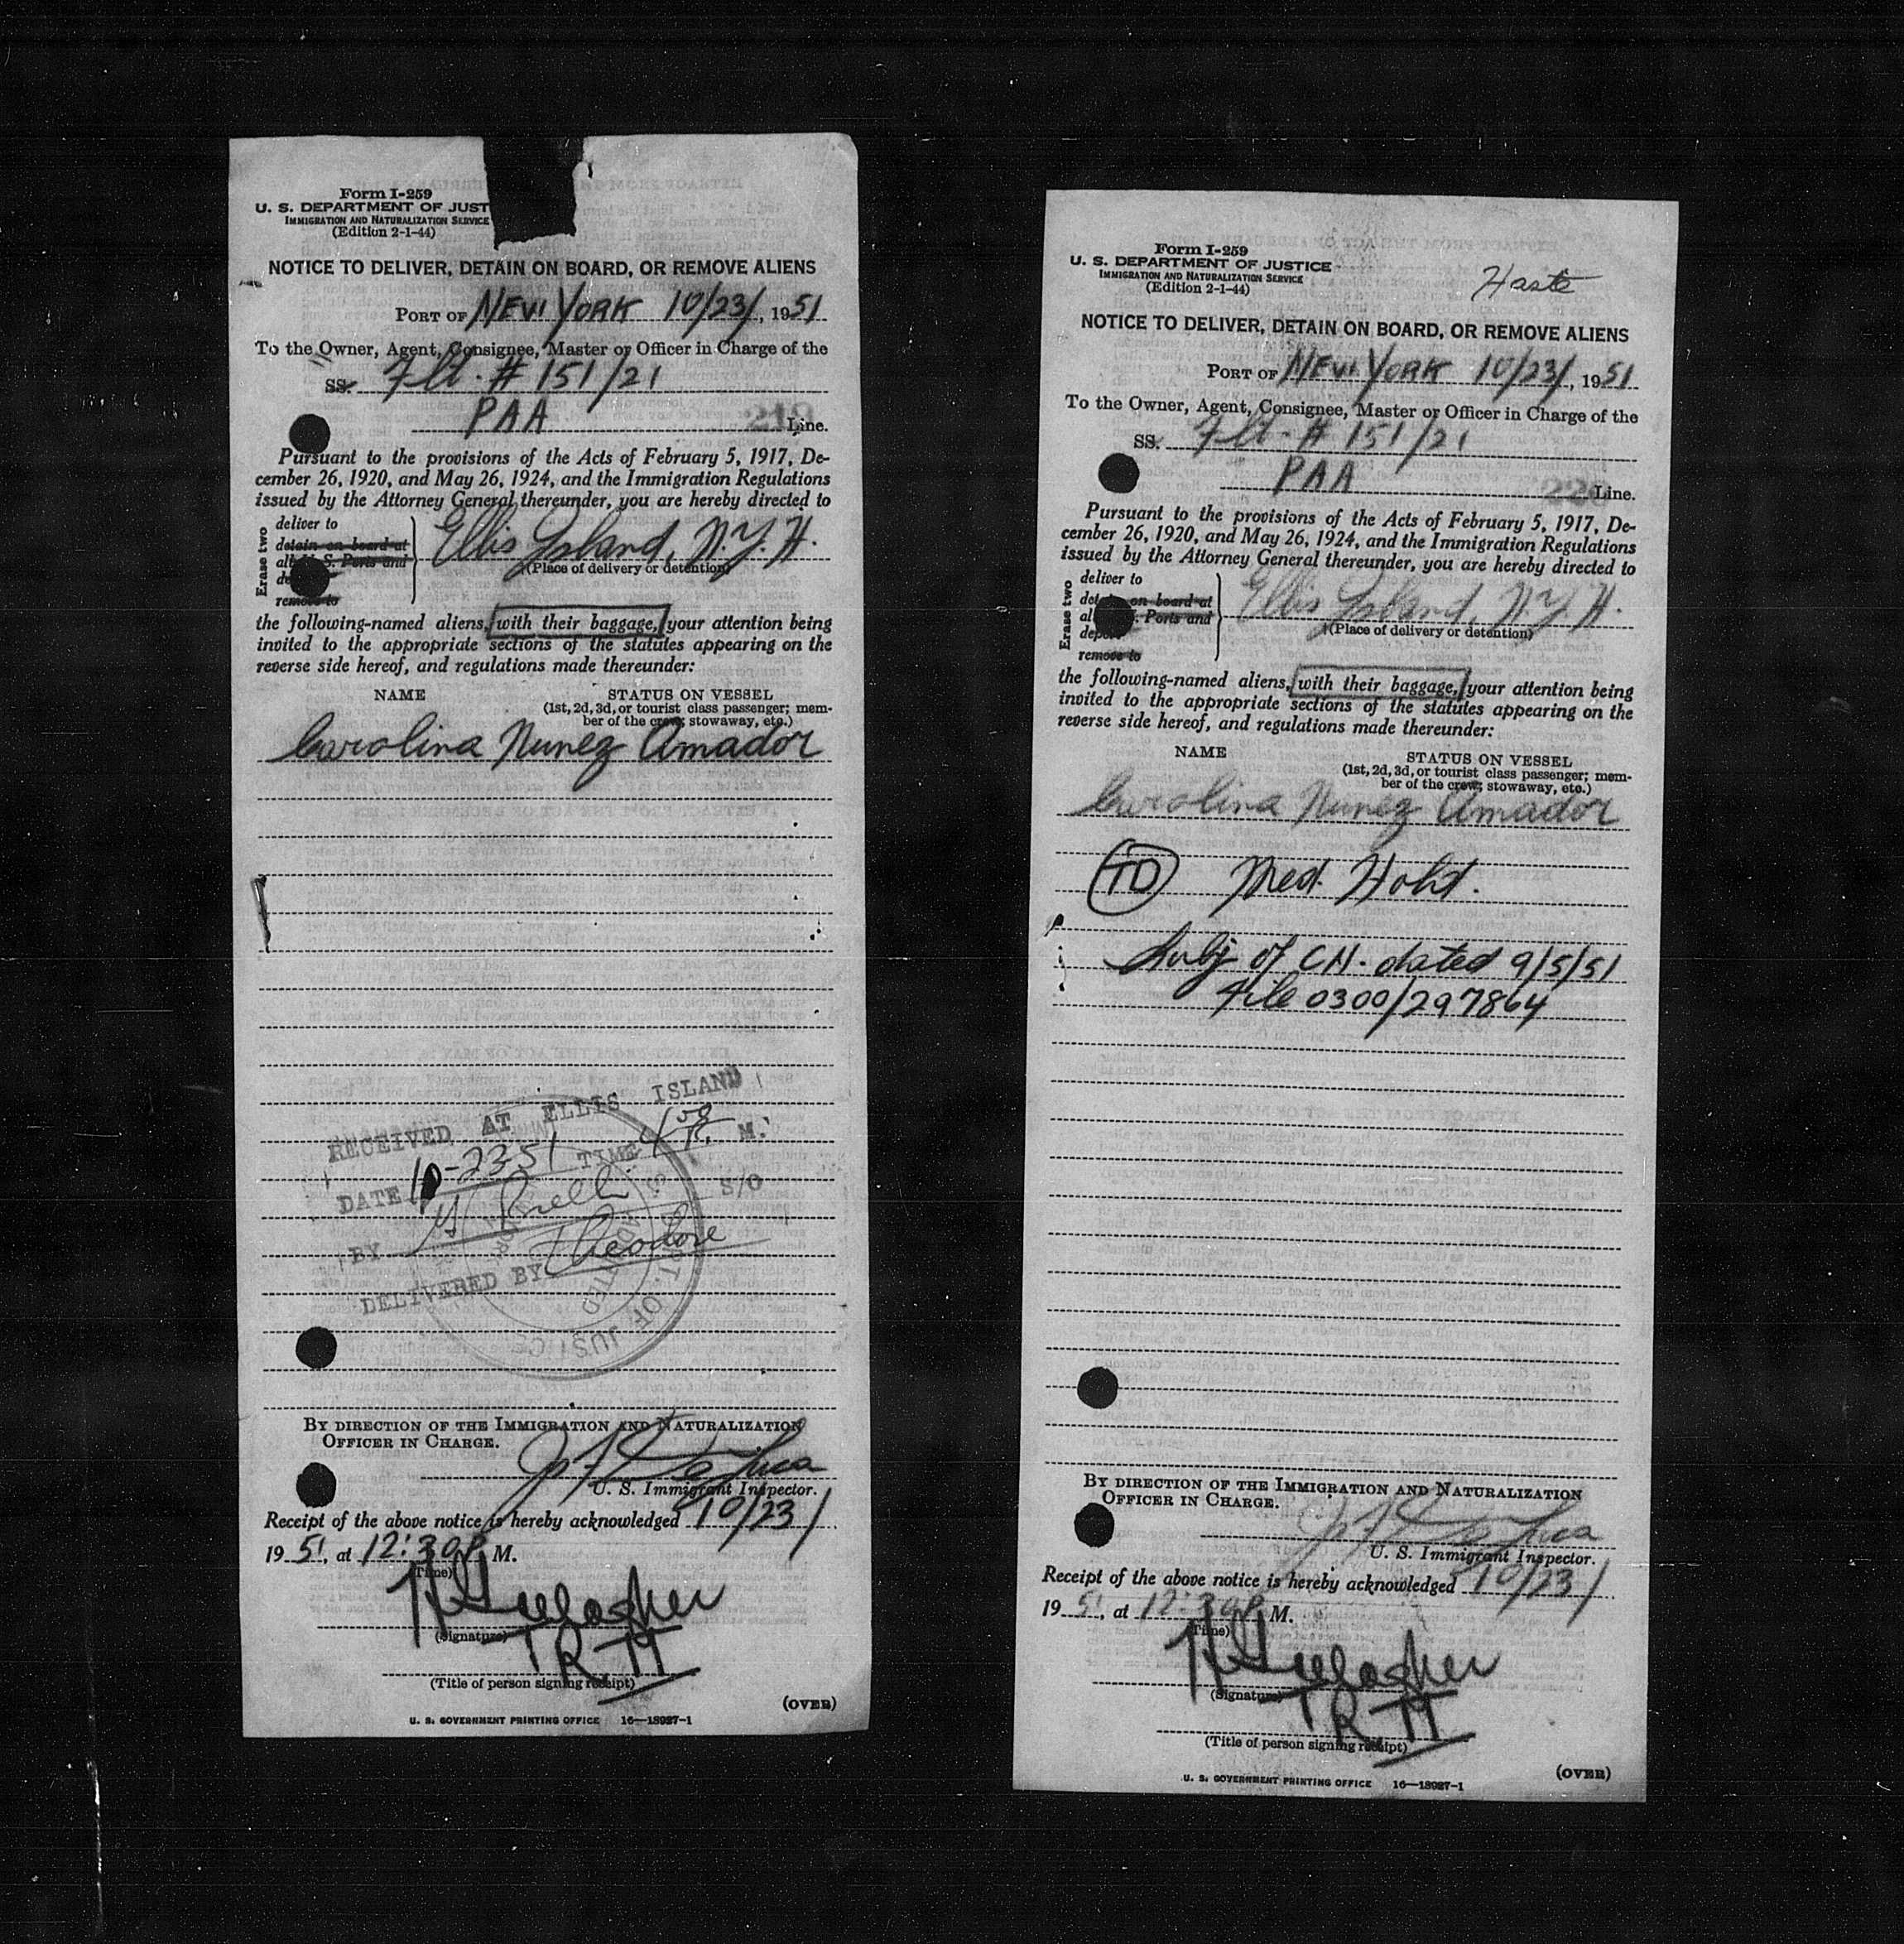 Form I-259
U. S. DEPARTMENT OF JUST
IMMIGRATION AND NATURALIZATION SERVICE
(Edition 2-1-44)
NOTICE TO DELIVER, DETAIN ON BOARD, OR REMOVE ALIENS
PORT OF NEW YORK 10/23/, 1951
To the Owner, Agent, Consignee, Master or Officer in Charge of the
SS. Flt. # 151/21
PAA 219 Line.
Pursuant to the provisions of the Acts of February 5, 1917, De-
cember 26, 1920, and May 26, 1924, and the Immigration Regulations
issued by the Attorney General thereunder, you are hereby directed to
Erase two
deliver to
detain on board at
all U. S. Ports and
de
remove to
Ellis Island, N.Y.H.
(Place of delivery or detention)
the following-named aliens, with their baggage, your attention being
invited to the appropriate sections of the statutes appearing on the
reverse side hereof, and regulations made thereunder:
NAME STATUS ON VESSEL
(1st, 2d, 3d, or tourist class passenger; mem-
ber of the crew; stowaway, etc.)
Carolina Nunez Amador
RECEIVED AT ELLIS ISLAND
DATE 10-23-51 TIME 4 50 P. M.
BY S/O
DELIVERED BY Theodore
DEPT. OF JUSTICE
BY DIRECTION OF THE IMMIGRATION AND NATURALIZATION
OFFICER IN CHARGE.
U. S. Immigrant Inspector.
Receipt of the above notice is hereby acknowledged 10/23/
1951, at 12:30 P. M.
(Time)
(Signature)
(Title of person signing receipt)
(OVER)
U. S. GOVERNMENT PRINTING OFFICE 16—18927-1
Form I-259
U. S. DEPARTMENT OF JUSTICE
IMMIGRATION AND NATURALIZATION SERVICE
(Edition 2-1-44)
Haste
NOTICE TO DELIVER, DETAIN ON BOARD, OR REMOVE ALIENS
PORT OF NEW YORK 10/23/, 1951
To the Owner, Agent, Consignee, Master or Officer in Charge of the
SS. Flt. # 151/21
PAA Line.
Pursuant to the provisions of the Acts of February 5, 1917, De-
cember 26, 1920, and May 26, 1924, and the Immigration Regulations
issued by the Attorney General thereunder, you are hereby directed to
Erase two
deliver to
detain on board at
al S. Ports and
depo
remove to
Ellis Island, N.Y.H.
(Place of delivery or detention)
the following-named aliens, with their baggage, your attention being
invited to the appropriate sections of the statutes appearing on the
reverse side hereof, and regulations made thereunder:
NAME STATUS ON VESSEL
(1st, 2d, 3d, or tourist class passenger; mem-
ber of the crew; stowaway, etc.)
Carolina Nunez Amador
TD Med. Hold.
Subj of CN. dated 9/5/51
File 0300/297864
BY DIRECTION OF THE IMMIGRATION AND NATURALIZATION
OFFICER IN CHARGE.
U. S. Immigrant Inspector.
Receipt of the above notice is hereby acknowledged 10/23/
1951, at 12:30 P. M.
(Time)
(Signature)
(Title of person signing receipt)
(OVER)
U. S. GOVERNMENT PRINTING OFFICE 16—18927-1